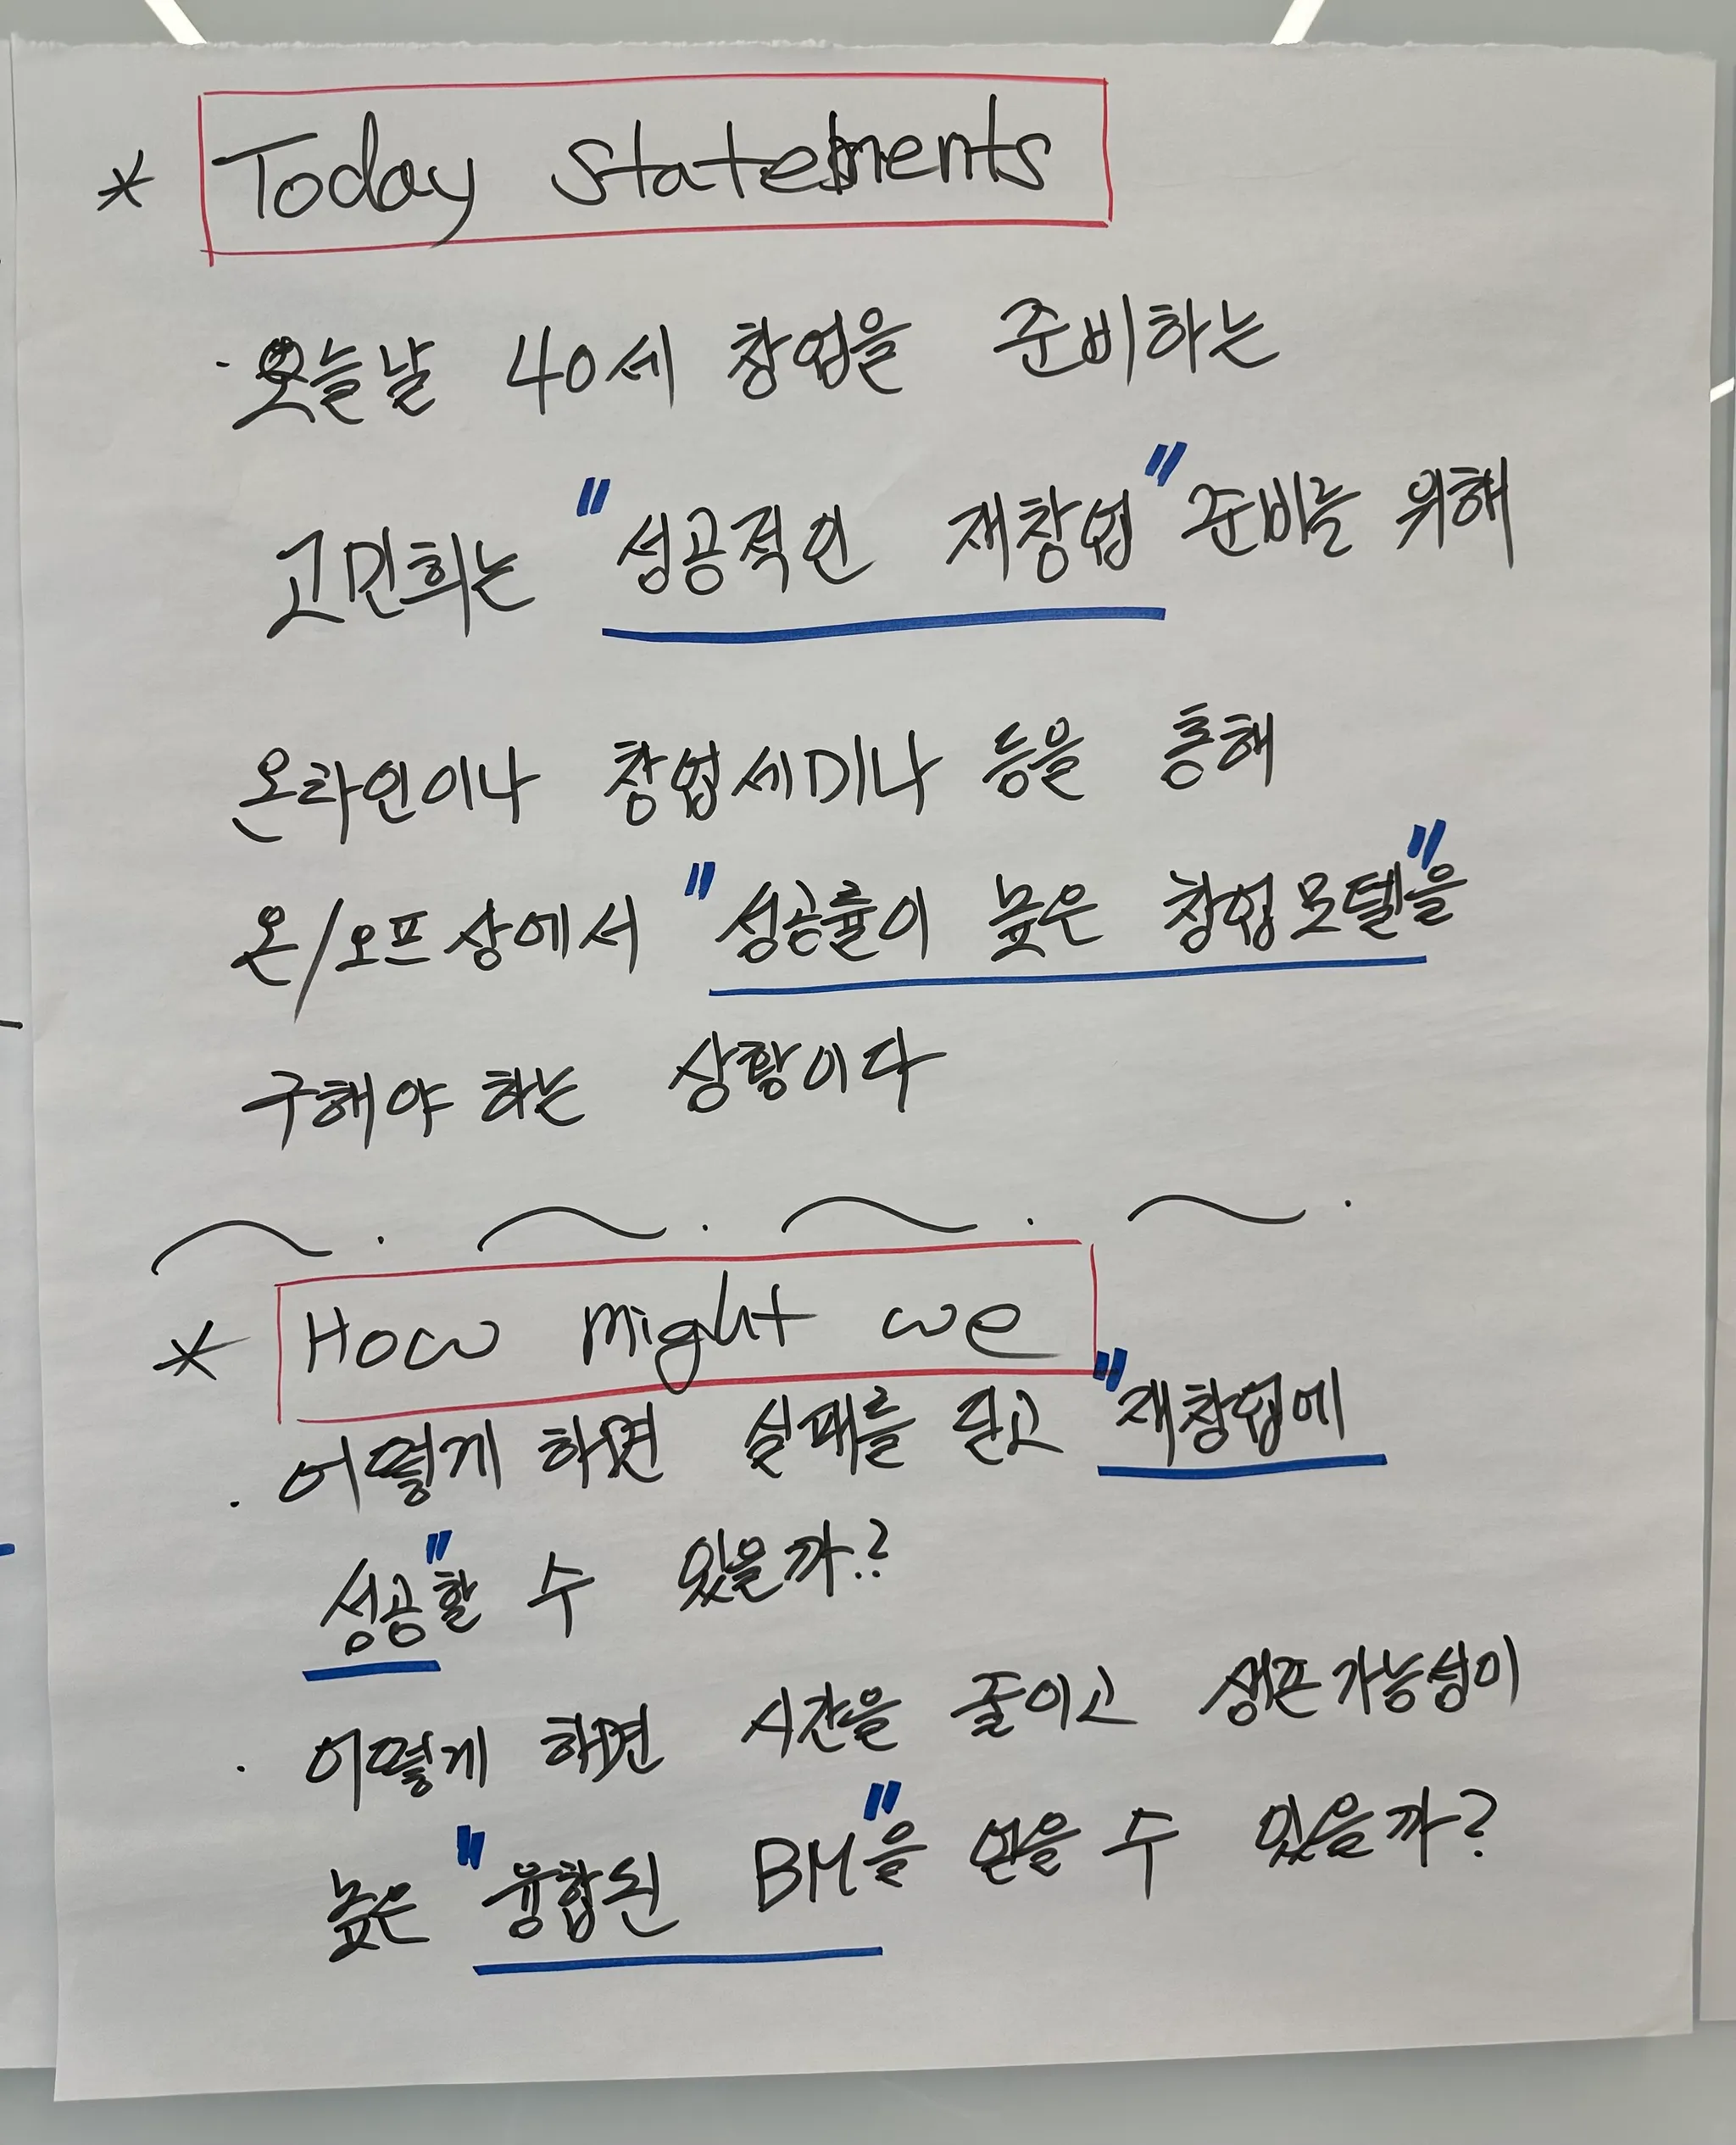 * Today Statements
· 오늘날 40세 창업을 준비하는
고민희는 "성공적인 재창업" 준비를 위해
온라인이나 창업세미나 등을 통해
온/오프 상에서 "성공률이 높은 창업모델"을
구해야 하는 상황이다
* How might we
· 어떻게 하면 실패를 딛고 "재창업에
성공"할 수 있을까?
· 어떻게 하면 시간을 줄이고 생존가능성이
높은 "융합된 BM"을 얻을 수 있을까?